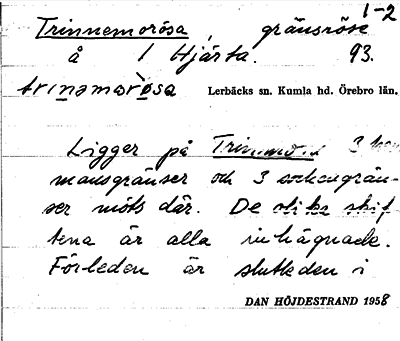 1-2
Trinnemorösa, gränsröse
å 1 Hjärta. 93.
trinǝmorö̀sa
Lerbäcks sn. Kumla hd. Örebro län.
Ligger på Trinnmo 3 hem
mansgränser och 3 sockengrän-
ser möts där. De olika skif
tena är alla inhägnade.
Förleden är slutleden i
DAN HÖJDESTRAND 1958